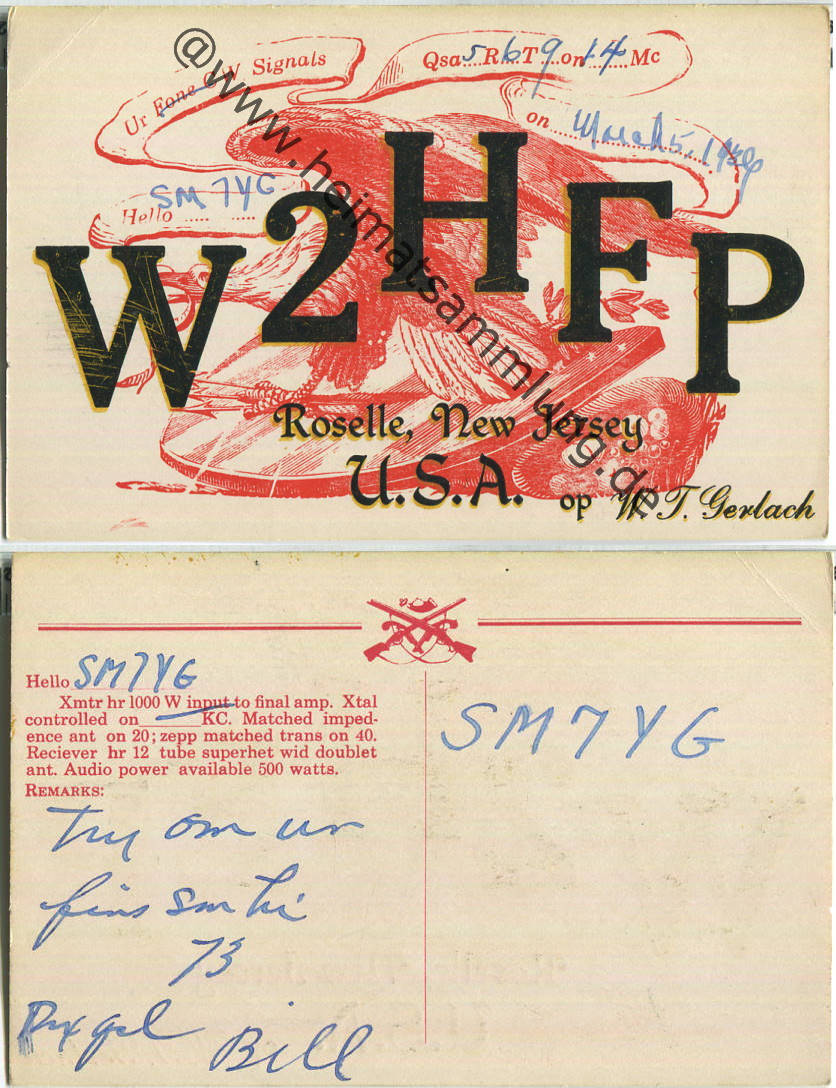 Ur Fone C W Signals
Qsa 5 R 6 T 9 on 14 Mc
on March 5, 1936
Hello SM7YG
W2HFP
Roselle, New Jersey
U.S.A.
op W. T. Gerlach
@www.heimatsammlung.de
Hello SM7YG
Xmtr hr 1000 W input to final amp. Xtal
controlled on KC. Matched imped-
ence ant on 20; zepp matched trans on 40.
Reciever hr 12 tube superhet wid doublet
ant. Audio power available 500 watts.
REMARKS:
om ur
73
Bill
SM7YG